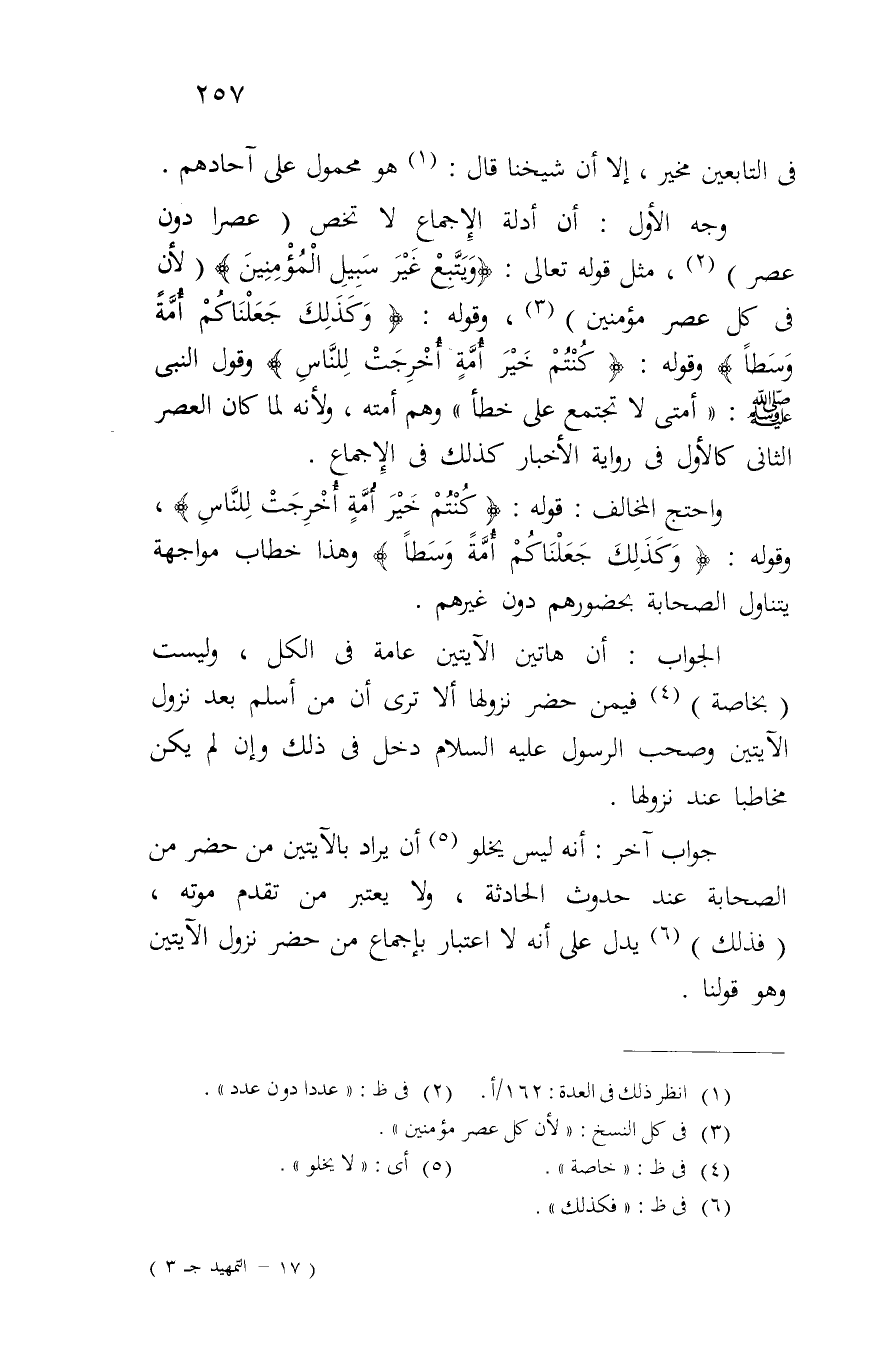 ٢٥٧
فى التابعين مخير ، إلا أن شيخنا قال : (١) هو محمول على آحادهم .
وجه الأول : أن أدلة الإجماع لا تخص ( عصرا دون
عصر ) (٢) ، مثل قوله تعالى : ﴿وَيَتَّبِعْ غَيْرَ سَبِيلِ الْمُؤْمِنِينَ ﴾ ( لأن
فى كل عصر مؤمنين ) (٣) ، وقوله : ﴿ وَكَذَلِكَ جَعَلْنَاكُمْ أُمَّةً
وَسَطاً ﴾ وقوله : ﴿ كُنْتُمْ خَيْرَ أُمَّةٍ أُخْرِجَتْ لِلنَّاسِ ﴾ وقول النبى
ﷺ : « أمتى لا تجتمع على خطأ » وهم أمته ، ولأنه لما كان العصر
الثانى كالأول فى رواية الأخبار كذلك فى الإجماع .
واحتج المخالف : قوله : ﴿ كُنْتُمْ خَيْرَ أُمَّةٍ أُخْرِجَتْ لِلنَّاسِ ﴾ ،
وقوله : ﴿ وَكَذَلِكَ جَعَلْنَاكُمْ أُمَّةً وَسَطاً ﴾ وهذا خطاب مواجهة
يتناول الصحابة بحضورهم دون غيرهم .
الجواب : أن هاتين الآيتين عامة فى الكل ، وليست
( بخاصة ) (٤) فيمن حضر نزولها ألا ترى أن من أسلم بعد نزول
الآيتين وصحب الرسول عليه السلام دخل فى ذلك وإن لم يكن
مخاطبا عند نزولها .
جواب آخر : أنه ليس يخلو (٥) أن يراد بالآيتين من حضر من
الصحابة عند حدوث الحادثة ، ولا يعتبر من تقدم موته ،
( فذلك ) (٦) يدل على أنه لا اعتبار بإجماع من حضر نزول الآيتين
وهو قولنا .
(١) انظر ذلك فى العدة : ١٦٢/أ . (٢) فى ظ : « عددا دون عدد » .
(٣) فى كل النسخ : « لأن كل عصر مؤمنين » .
(٤) فى ظ : « خاصة » . (٥) أى : « لا يخلو » .
(٦) فى ظ : « فكذلك » .
( ١٧ – التمهيد جـ ٣ )